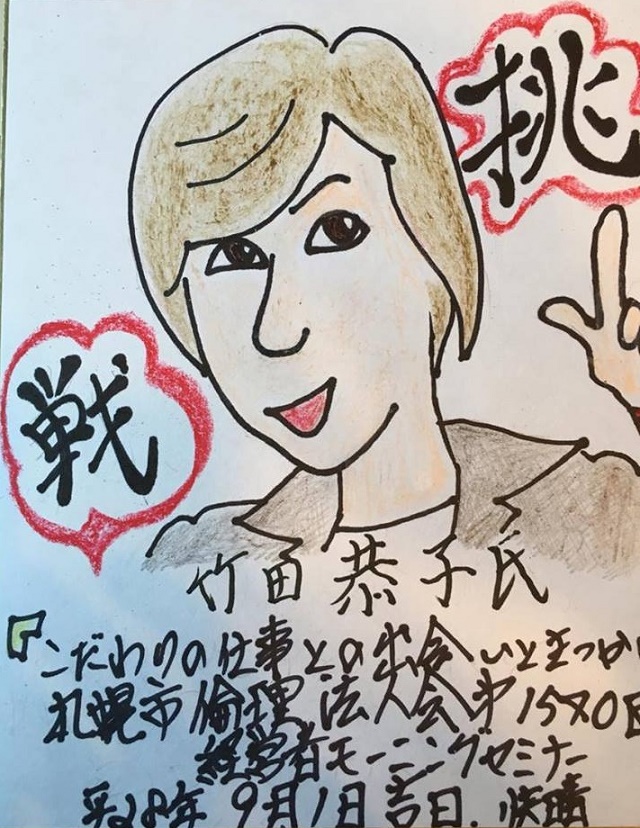 挑
戦
竹田恭子氏
『こだわりの仕事との出会いときっか
札幌市倫理法人会第1570回
経営者モーニングセミナー
平28年9月1日吉日.快晴